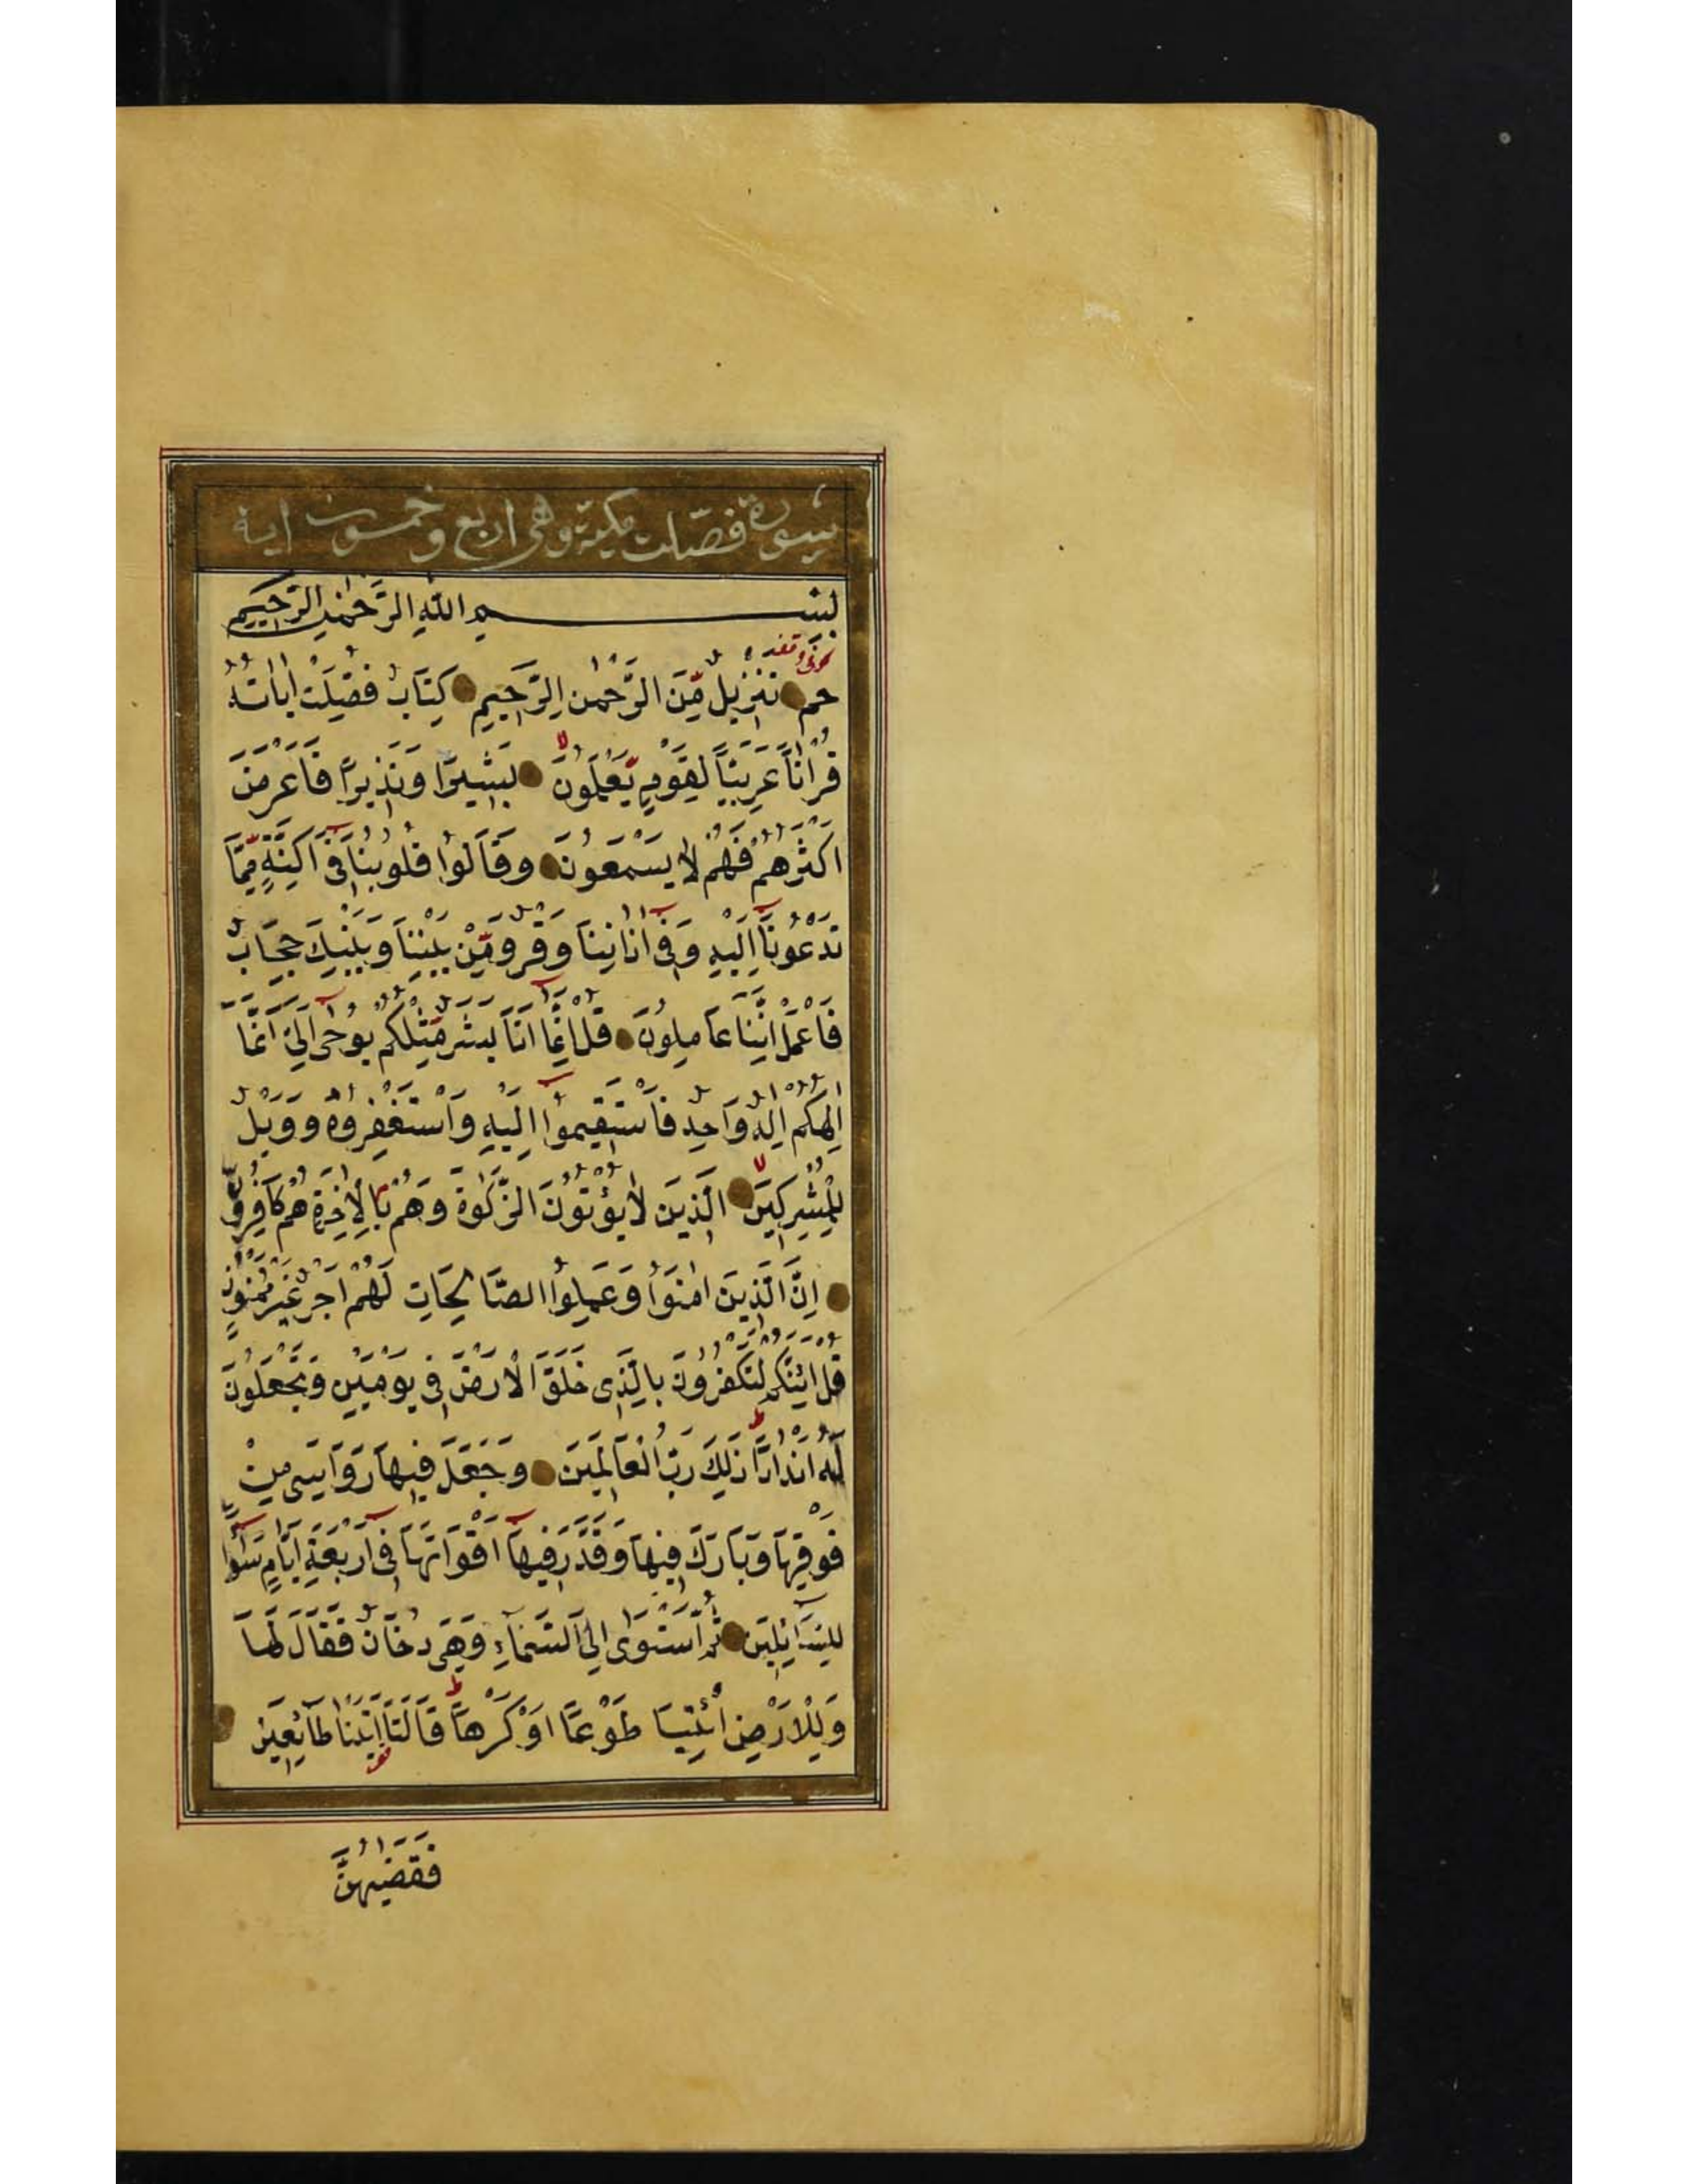 سورة فصّلت مكية وهى اربع وخمسون اية
بسم اللّٰهِ الرَّحْمٰنِ الرَّحيمِ
حم تَنْزيلٌ مِّنَ الرَّحْمٰنِ الرَّحيمِ كِتَابٌ فُصِّلَتْ اٰيَاتُهُ
قُرْاٰنًا عَرَبِيًّا لِقَوْمٍ يَّعْلَمُونَ بَشيرًا وَنَذيرًا فَاَعْرَضَ
اَكْثَرُهُمْ فَهُمْ لَا يَسْمَعُونَ وَقَالُوا قُلُوبُنَا فى اَكِنَّةٍ مِّمَّا
تَدْعُونَا اِلَيْهِ وَفى اٰذَانِنَا وَقْرٌ وَمِّنْ بَيْنِنَا وَبَيْنِكَ حِجَابٌ
فَاعْمَلْ اِنَّنَا عَامِلُونَ قُلْ اِنَّمَا اَنَا بَشَرٌ مِّثْلُكُمْ يُوحٰى اِلَىَّ اَنَّمَا
اِلٰهُكُمْ اِلٰهٌ وَاحِدٌ فَاسْتَقيمُوا اِلَيْهِ وَاسْتَغْفِرُوهُ وَوَيْلٌ
لِلْمُشْرِكينَ الَّذينَ لَا يُؤْتُونَ الزَّكٰوةَ وَهُمْ بِالْاٰخِرَةِ هُمْ كَافِرُونَ
اِنَّ الَّذينَ اٰمَنُوا وَعَمِلُوا الصَّالِحَاتِ لَهُمْ اَجْرٌ غَيْرُ مَمْنُونٍ
قُلْ اَئِنَّكُمْ لَتَكْفُرُونَ بِالَّذى خَلَقَ الْاَرْضَ فى يَوْمَيْنِ وَتَجْعَلُونَ
لَهُ اَنْدَادًا ذٰلِكَ رَبُّ الْعَالَمينَ وَجَعَلَ فيهَا رَوَاسِىَ مِنْ
فَوْقِهَا وَبَارَكَ فيهَا وَقَدَّرَ فيهَا اَقْوَاتَهَا فى اَرْبَعَةِ اَيَّامٍ سَوَاءً
لِلسَّائِلينَ ثُمَّ اسْتَوٰى اِلَى السَّمَاءِ وَهِىَ دُخَانٌ فَقَالَ لَهَا
وَلِلْاَرْضِ ائْتِيَا طَوْعًا اَوْ كَرْهًا قَالَتَا اَتَيْنَا طَائِعينَ
فَقَضٰيهُنَّ